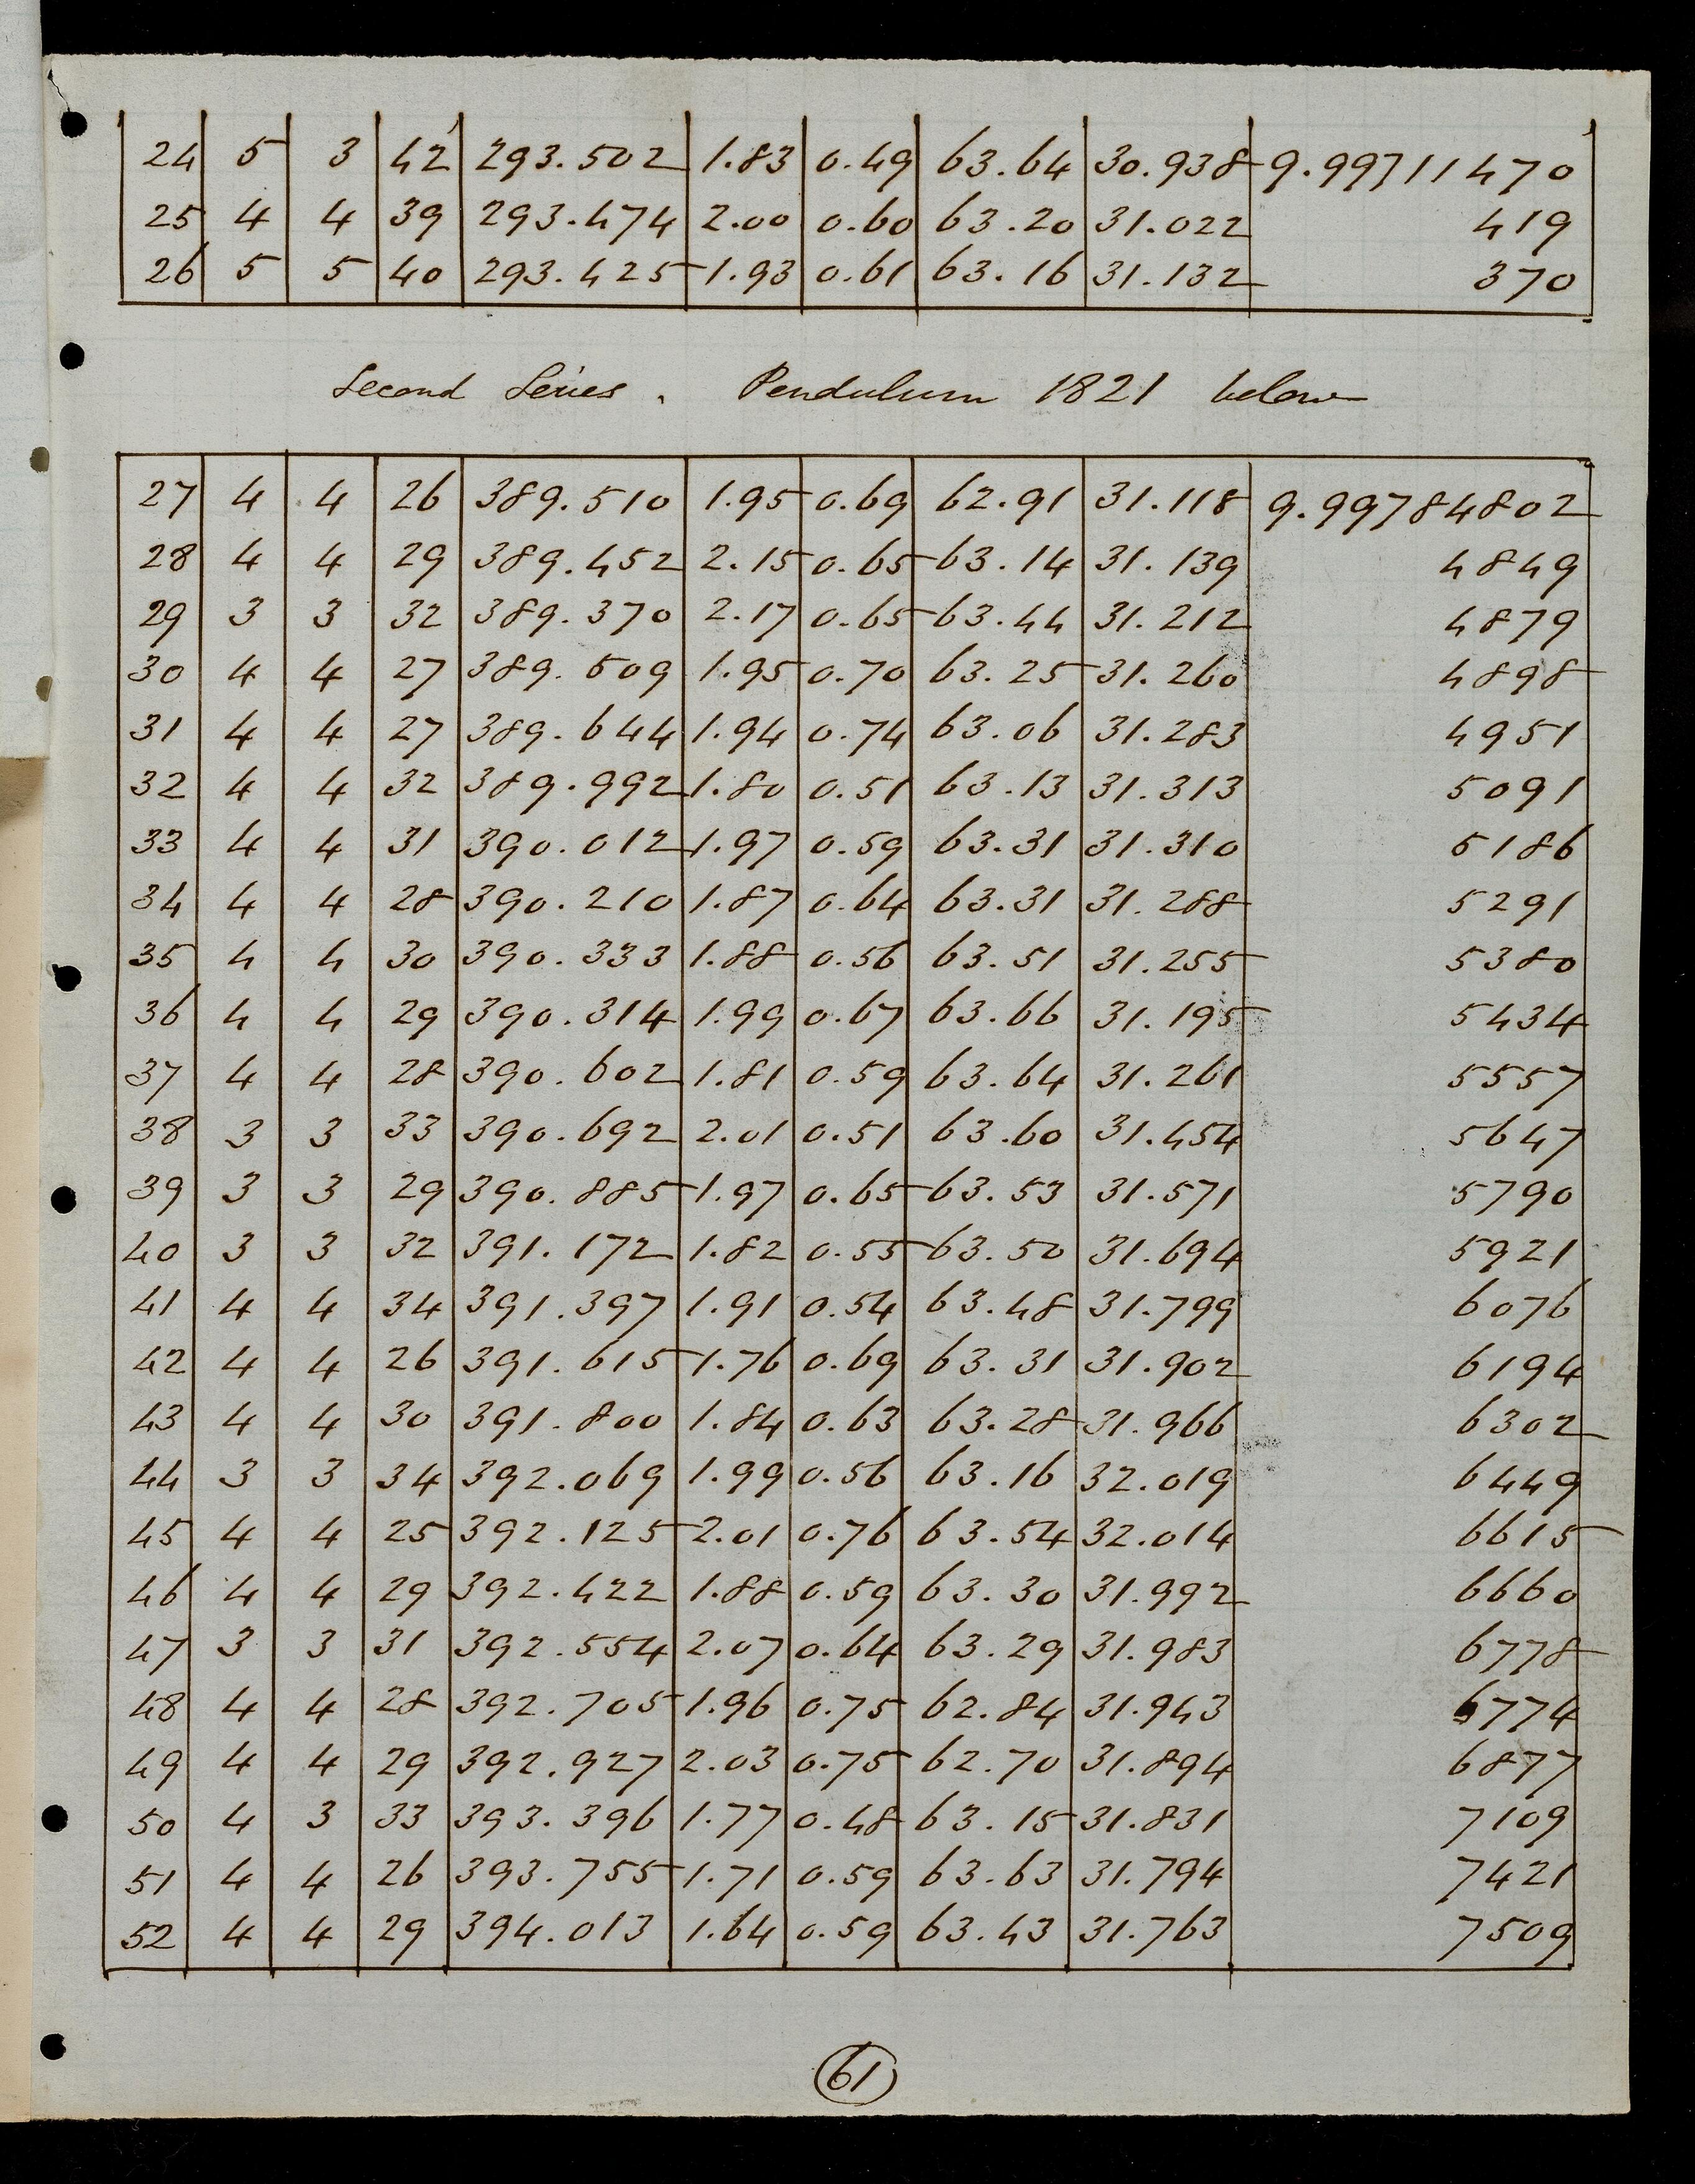 24 5 3 42 293.502 1.83 0.49 63.64 30.938 9.99711470
25 4 4 39 293.474 2.00 0.60 63.20 31.022 419
26 5 5 40 293.425 1.93 0.61 63.16 31.132 370
Second Series. Pendulum 1821 below
27 4 4 26 389.510 1.95 0.69 62.91 31.118 9.99784802
28 4 4 29 389.452 2.15 0.65 63.14 31.139 4849
29 3 3 32 389.370 2.17 0.65 63.44 31.212 4879
30 4 4 27 389.509 1.95 0.70 63.25 31.260 4898
31 4 4 27 389.644 1.94 0.74 63.06 31.283 4951
32 4 4 32 389.992 1.80 0.51 63.13 31.313 5091
33 4 4 31 390.012 1.97 0.59 63.31 31.310 5186
34 4 4 28 390.210 1.87 0.64 63.31 31.288 5291
35 4 4 30 390.333 1.88 0.56 63.51 31.255 5380
36 4 4 29 390.314 1.99 0.67 63.66 31.195 5434
37 4 4 28 390.602 1.81 0.59 63.64 31.261 5557
38 3 3 33 390.692 2.01 0.51 63.60 31.454 5647
39 3 3 29 390.885 1.97 0.65 63.53 31.571 5790
40 3 3 32 391.172 1.82 0.55 63.50 31.694 5921
41 4 4 34 391.397 1.91 0.54 63.48 31.799 6076
42 4 4 26 391.615 1.76 0.69 63.31 31.902 6194
43 4 4 30 391.800 1.84 0.63 63.28 31.966 6302
44 3 3 34 392.069 1.99 0.56 63.16 32.019 6449
45 4 4 25 392.125 2.01 0.76 63.54 32.014 6615
46 4 4 29 392.422 1.88 0.59 63.30 31.992 6660
47 3 3 31 392.554 2.07 0.64 63.29 31.983 6778
48 4 4 28 392.705 1.96 0.75 62.84 31.943 6774
49 4 4 29 392.927 2.03 0.75 62.70 31.894 6877
50 4 3 33 393.396 1.77 0.48 63.15 31.831 7109
51 4 4 26 393.755 1.71 0.59 63.63 31.794 7421
52 4 4 29 394.013 1.64 0.59 63.43 31.763 7509
61